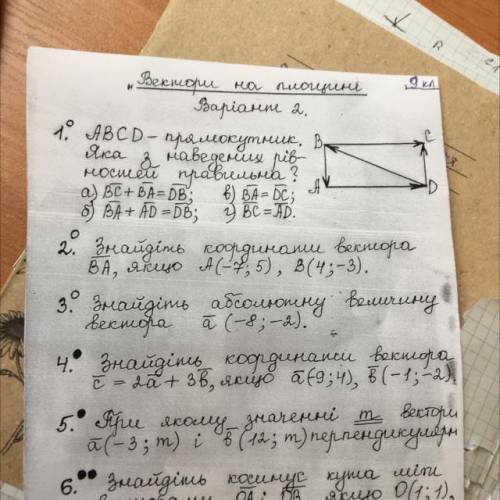 „Вектори на площині 9 кл
Варіант 2.
1.° ABCD – прямокутник.
Яка з наведених рів-
ностей правильна?
а) BC + BA = DB; в) BA = DC;
б) BA + AD = DB; г) BC = AD.
B C
A D
2.° Знайдіть координати вектора
BA, якщо A(-7; 5), B(4; -3).
3.° Знайдіть абсолютну величину
вектора a (-8; -2).
4.• Знайдіть координати вектора
c = 2a + 3b, якщо a(-9; 4), b(-1; -2)
5.• При якому значенні m вектори
a(-3; m) і b(12; m) перпендикулярн
6.•• Знайдіть косинус кута між
OA і OB якщо O(1; 1),